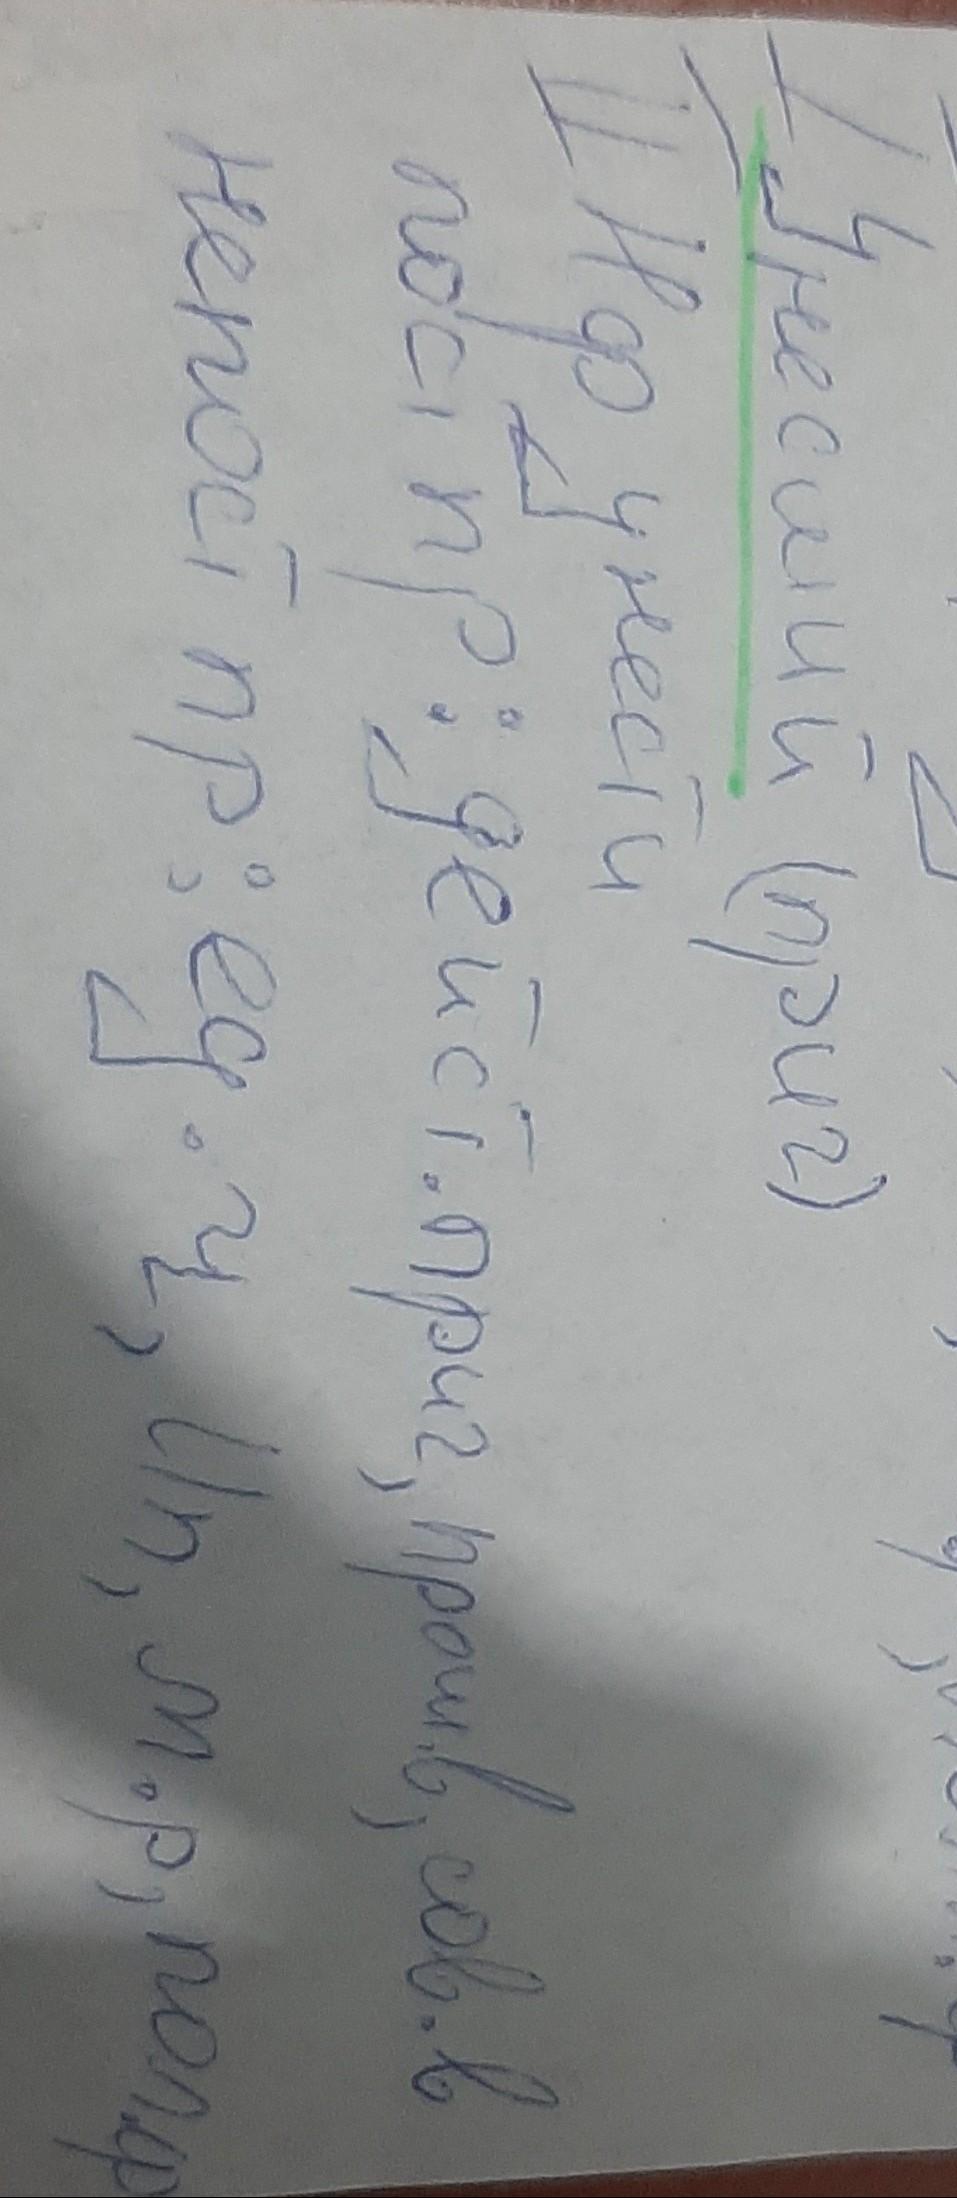 I Унесший (прич)
II Нф унести
пост пр: дейст. прич, прош.в, сов.в
непост пр: ед.ч, Ип, м.р, полф